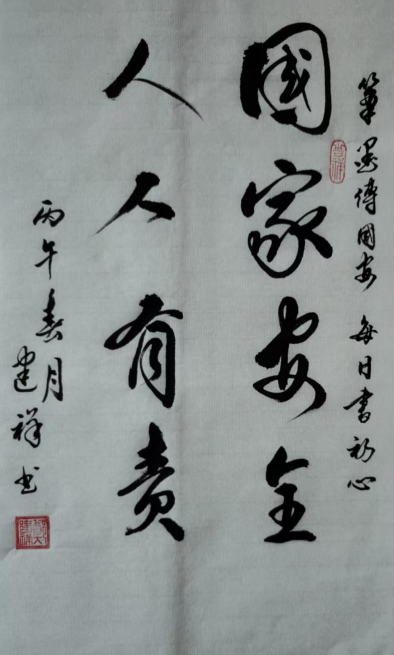 筆墨傳國安 每日書初心
國家安全
人人有責
丙午春月
建祥书